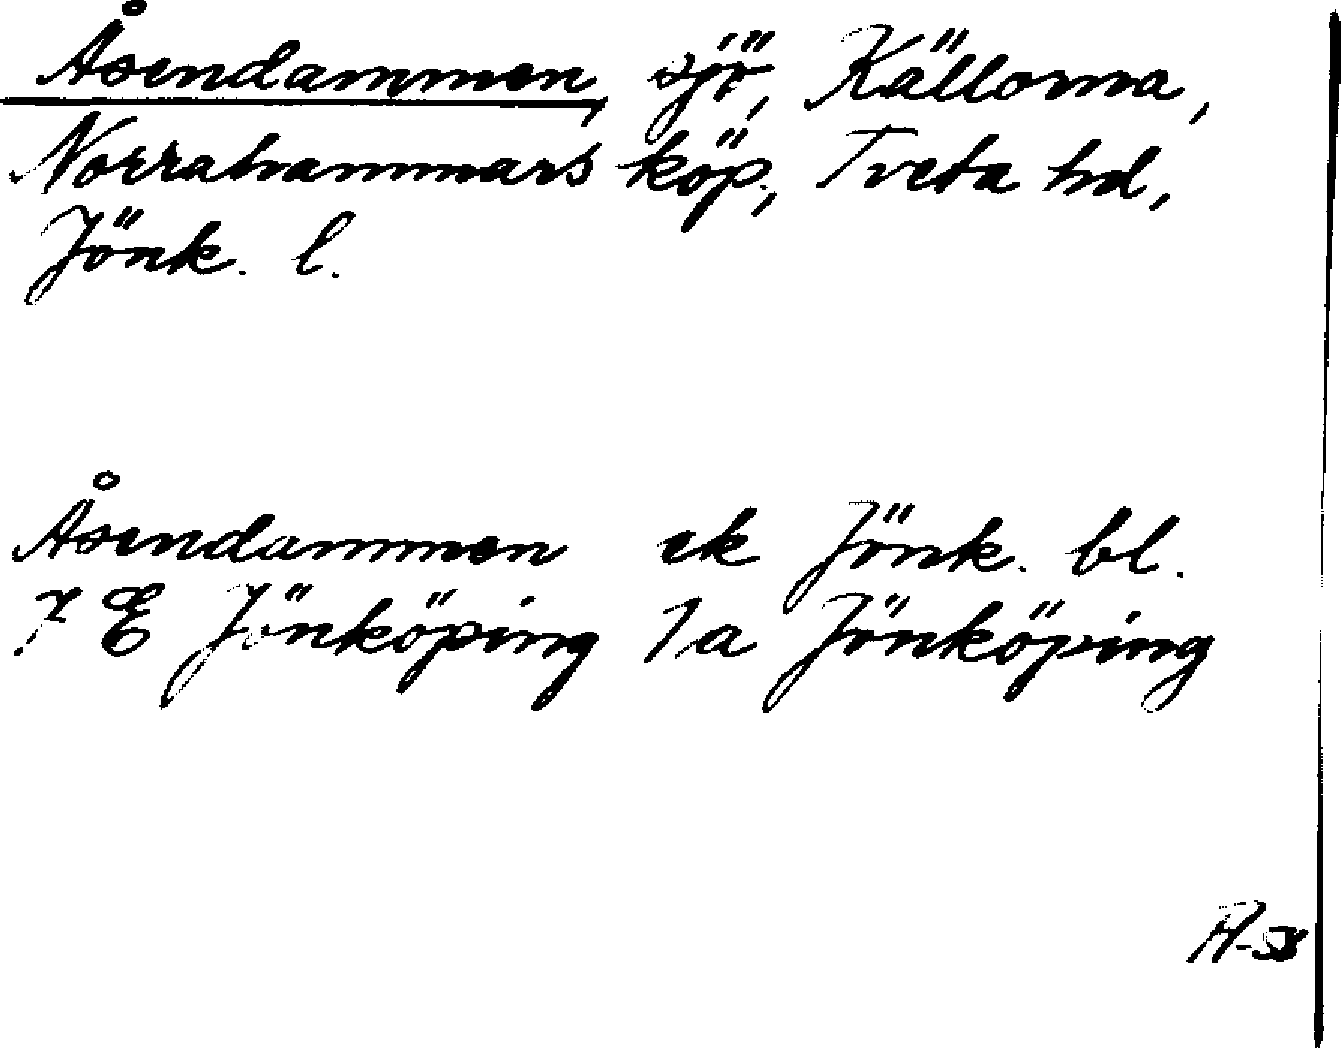 Åsendammen, sjö, Källorna,
Norrahammars köp., Tveta hd,
Jönk. l.
Åsendammen ek Jönk. bl.
7 E Jönköping 1a Jönköping